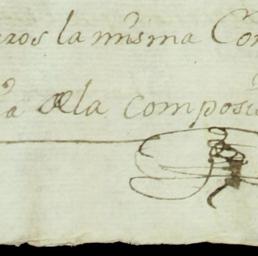 ros la misma Con
a de la composic